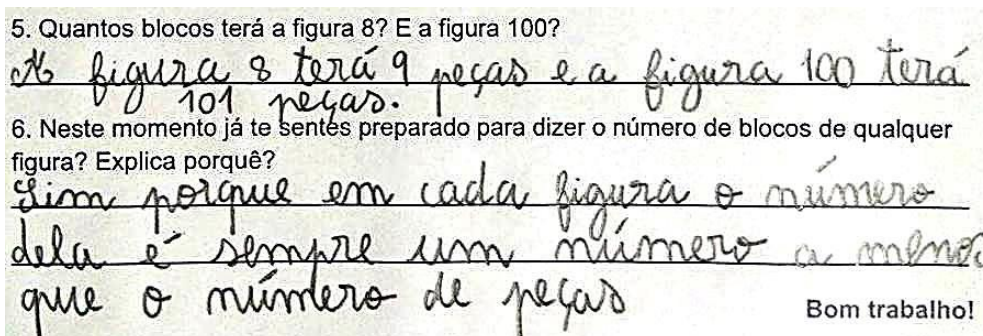 5. Quantos blocos terá a figura 8? E a figura 100?
A figura 8 terá 9 peças e a figura 100 terá
101 peças.
6. Neste momento já te sentes preparado para dizer o número de blocos de qualquer
figura? Explica porquê?
Sim porque em cada figura o número
dela é sempre um número a menos
que o número de peças
Bom trabalho!